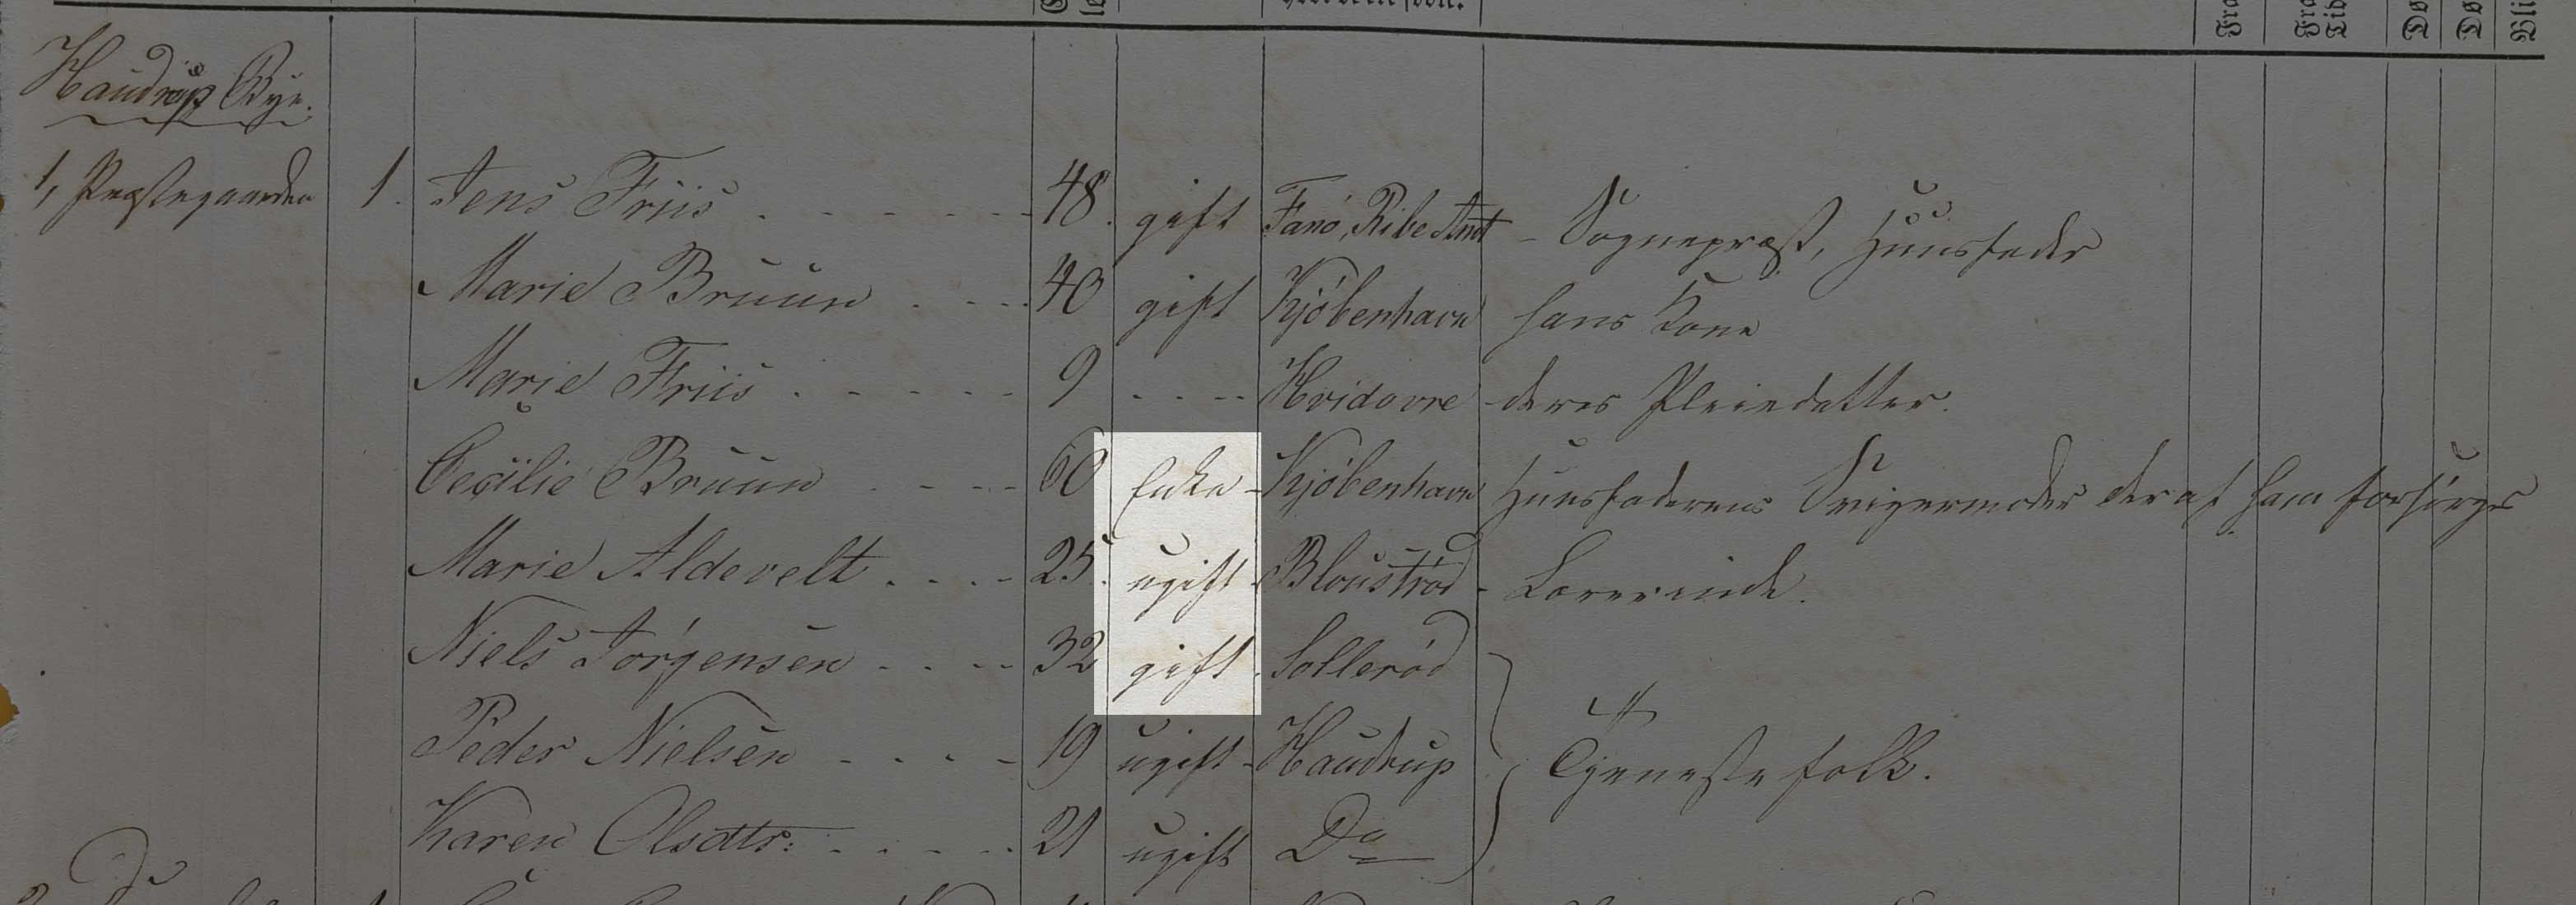 Haudrup Bye.
1, Præstegaarden 1. Jens Friis 48. gift Fanö, Ribe Amt - Sognepræst, Huusfader
Marie Bruun 40 gift Kjöbenhavn hans Kone
Marie Friis 9 Hvidovre - deres Pleiedatter.
Cecilie Bruun 60 Enke - Kjöbenhavn Huusfaderens Svigermoder der af ham forsörges
Marie Aldevelt 25. ugift - Blouströd - Lærerinde.
Niels Jörgensen 32 gift - Sölleröd
Peder Nielsen 19 ugift - Haudrup Tjenestefolk.
Karen Olsdtr: 21 ugift Do